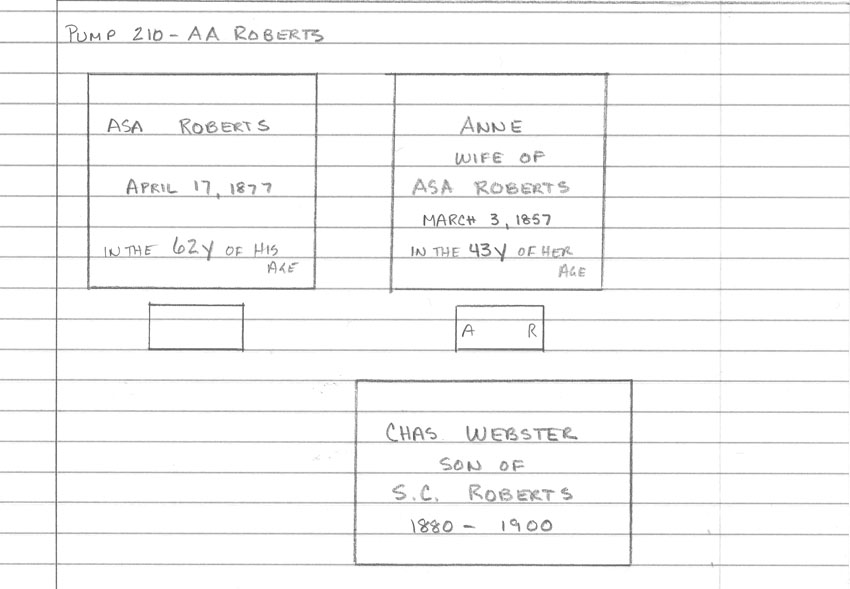 PUMP 210 - AA ROBERTS
ASA ROBERTS
APRIL 17, 1877
IN THE 62Y OF HIS
AGE
ANNE
WIFE OF
ASA ROBERTS
MARCH 3, 1857
IN THE 43Y OF HER
AGE
A R
CHAS WEBSTER
SON OF
S.C. ROBERTS
1880 - 1900